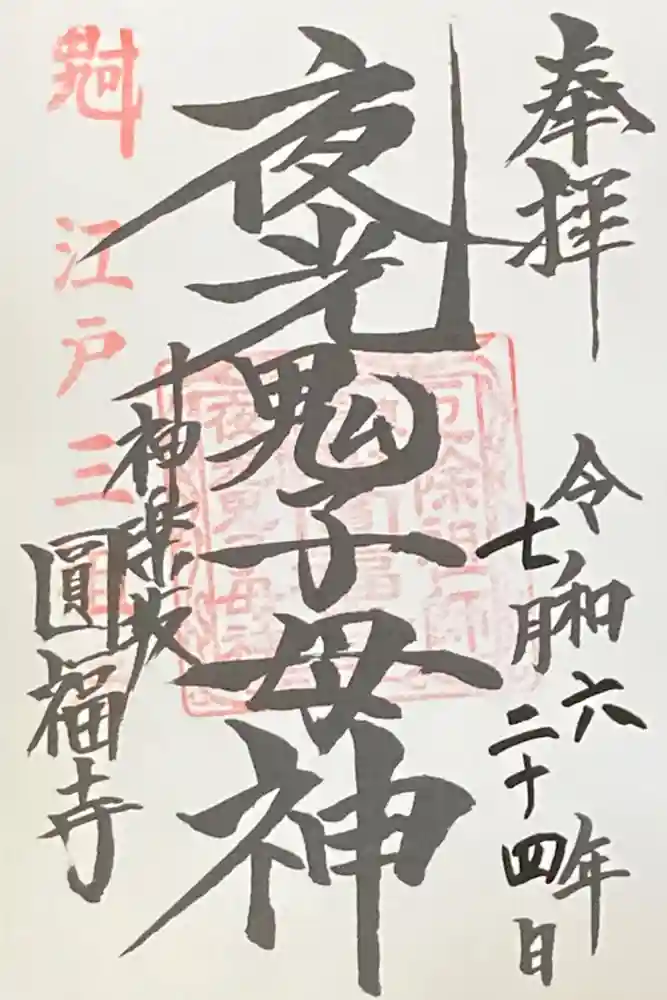 奉拝
令和六年
七月二十四日
夜光鬼子母神
神楽坂
圓福寺
江戸三
厄除祖師